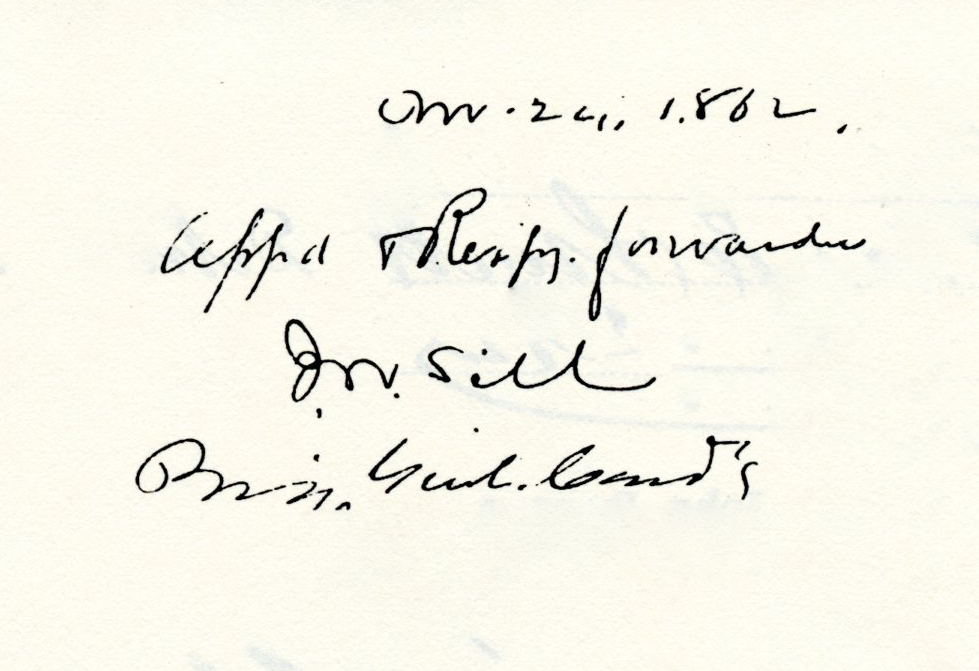 Nov. 24, 1862.
Appd & Respy. forwarded
J. W. Sill
Brig. Genl. Comd'g